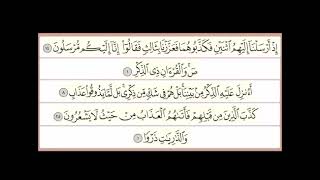 إِذْ أَرْسَلْنَآ إِلَيْهِمُ ٱثْنَيْنِ فَكَذَّبُوهُمَا فَعَزَّزْنَا بِثَالِثٍ فَقَالُوٓا۟ إِنَّآ إِلَيْكُم مُّرْسَلُونَ ١٤
صٓ وَٱلْقُرْءَانِ ذِى ٱلذِّكْرِ ١
أَءُنزِلَ عَلَيْهِ ٱلذِّكْرُ مِنۢ بَيْنِنَا بَلْ هُمْ فِى شَكٍّ مِّن ذِكْرِى بَل لَّمَّا يَذُوقُوا۟ عَذَابِ ٨
كَذَّبَ ٱلَّذِينَ مِن قَبْلِهِمْ فَأَتَىٰهُمُ ٱلْعَذَابُ مِنْ حَيْثُ لَا يَشْعُرُونَ ٢٥
وَٱلذَّٰرِيَٰتِ ذَرْوًا ١